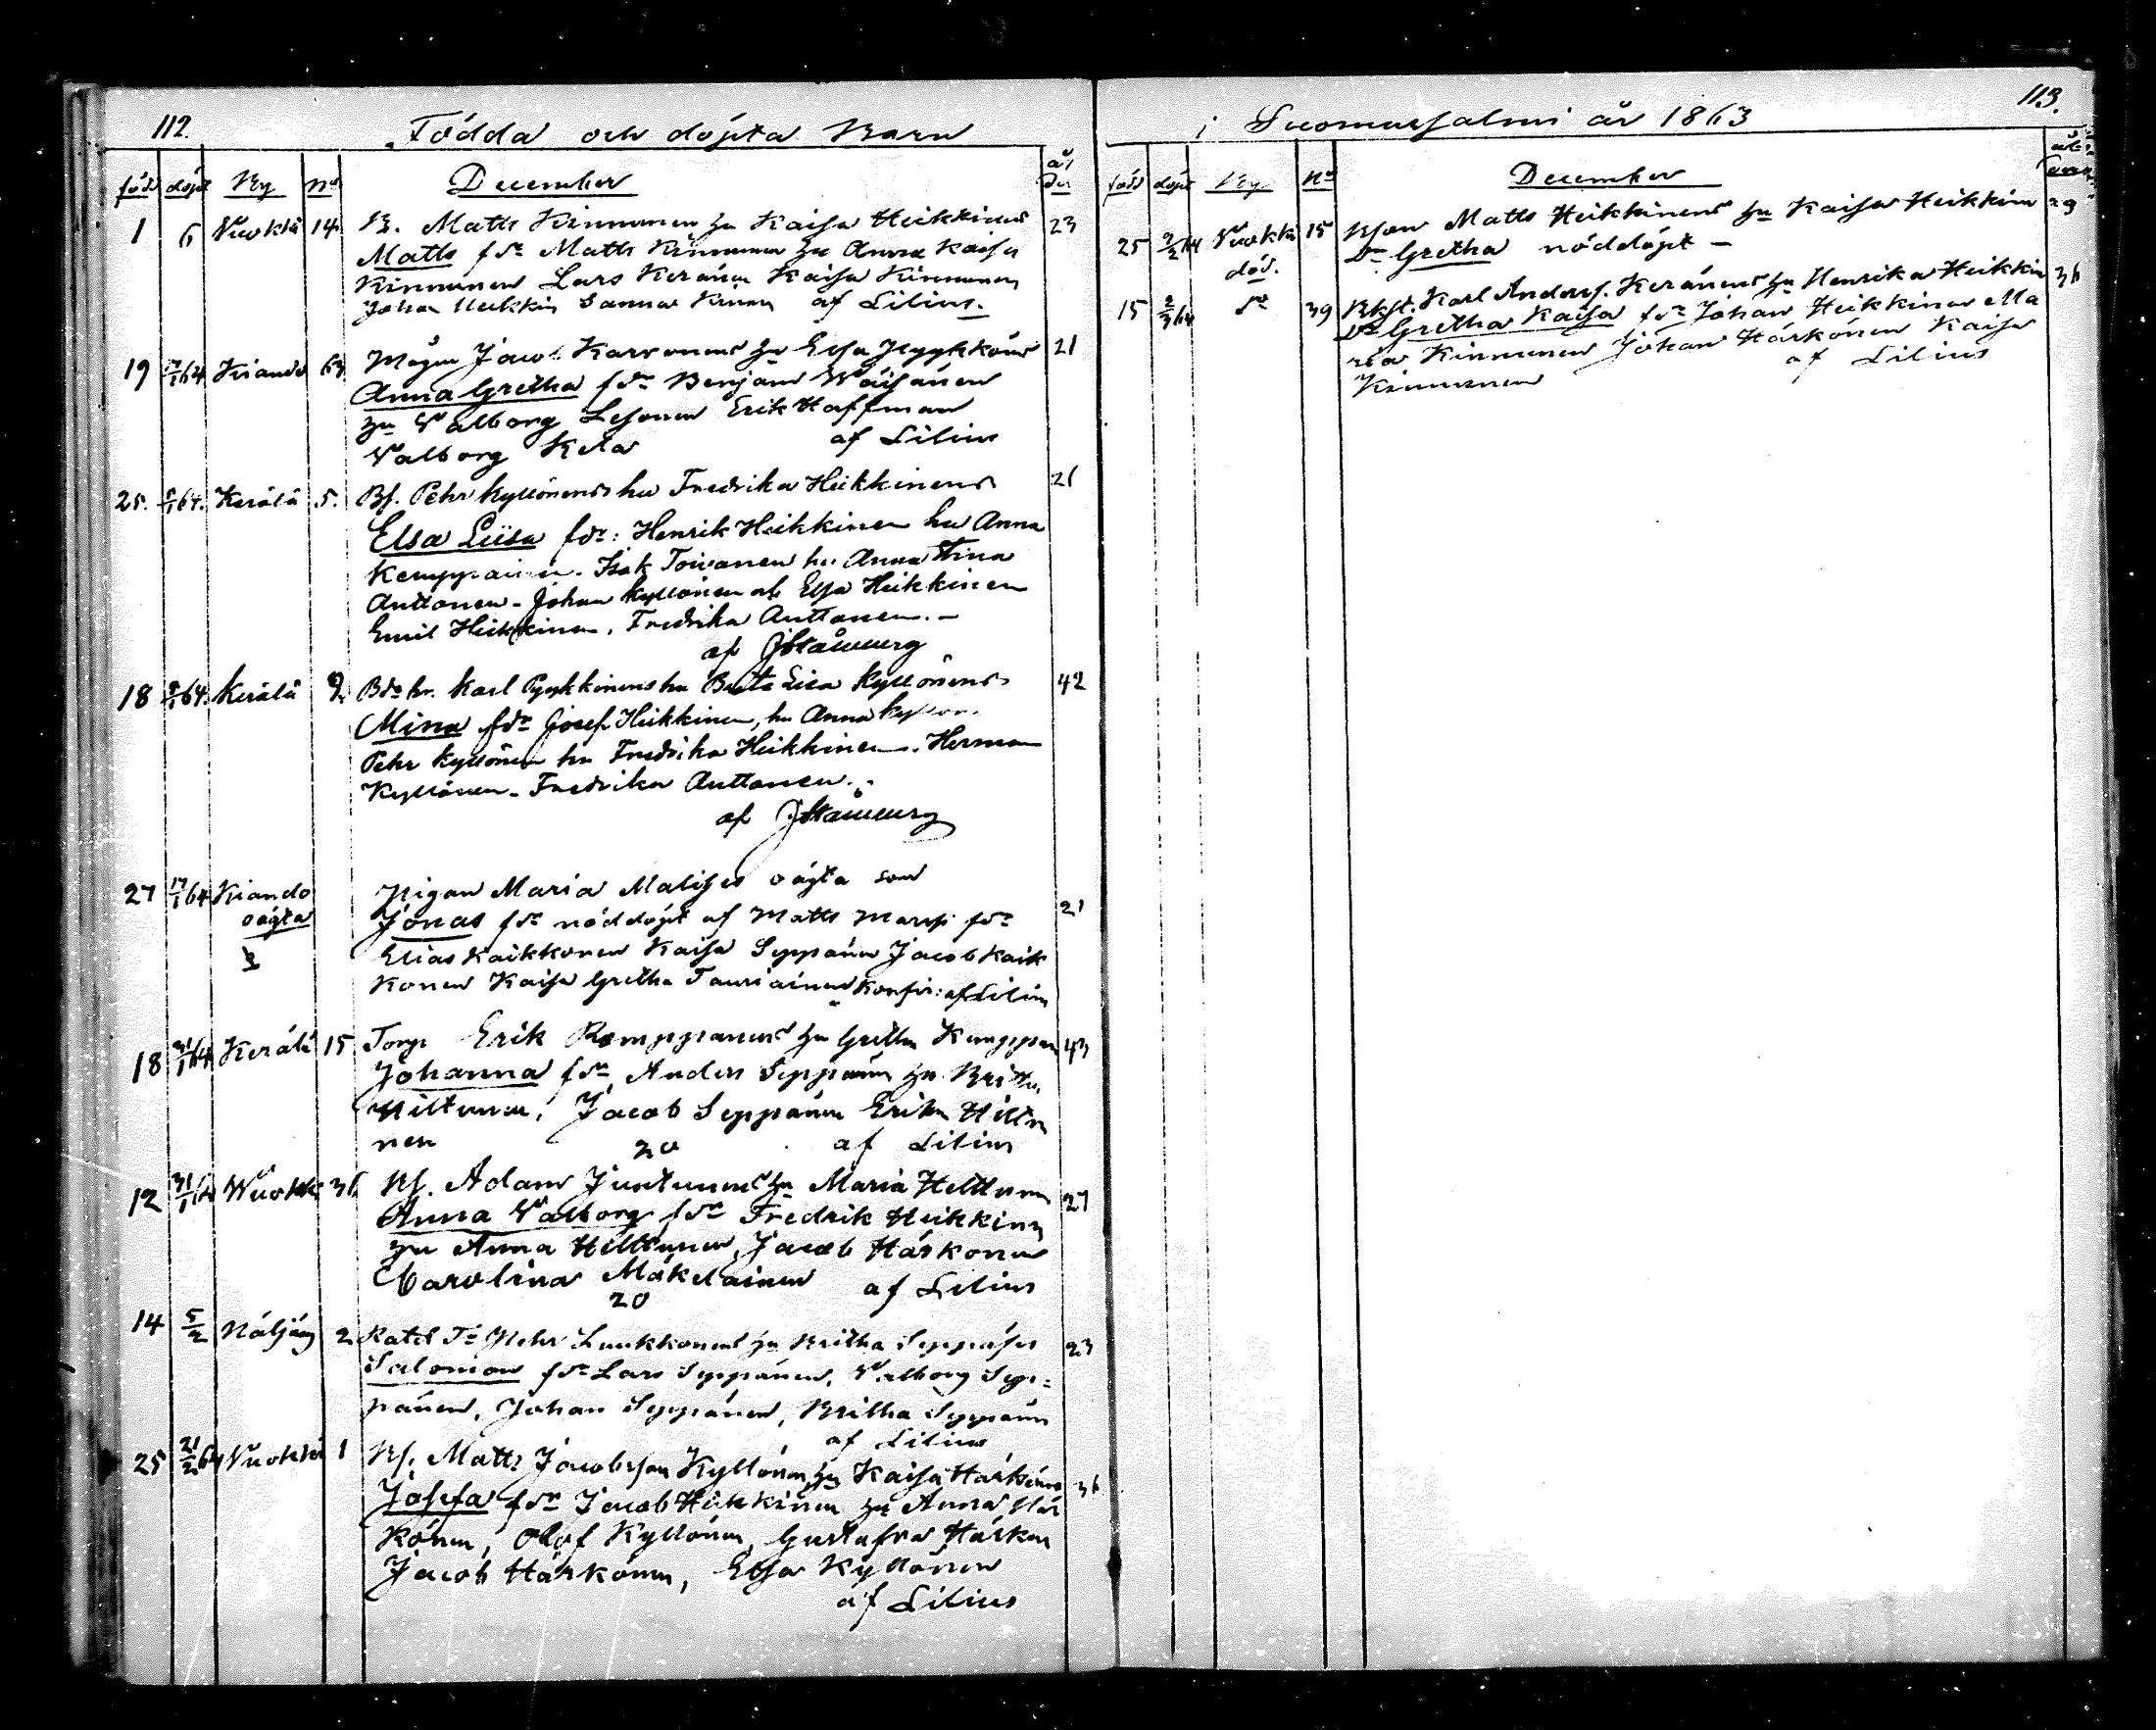 112.
Födda och döpta Barn
född döpt By No December ålder
1 6 Vuokki 14 B. Matts Kinnunen hu Kaisa Heikkinens 23
Matts fdr Matts Kinnunen hu Anna Kaisa
Kinnunen Lars Keränen Kaisa Kinnunen
Johan Heikkin Sanna Kinnn af Lilius.
19 /1 64 Kiando 69 Mågen Jacob Karvonens hu Elsa Pyykköns 21
Anna Gretha fdr Benjam Wäisänen
hu Walborg Lesonen Erik Haffman
Walborg Kela af Lilius
25. 6/1 64. Kerälä 5. Bs. Pehr Kyllönens hu Fredrika Heikkinens 21
Elsa Liisa fdr: Henrik Heikkinen hu Anna
Kemppainen. Isak Toivanen hu Anna Stina
Anttonen - Johan Kyllönen o Elsa Heikkinen
Emil Heikkinen, Fredrika Anttonen. -
af JStåhlberg
18 6/1 64. Kerälä 9 Bdr hr. Karl Pyykkinens hu Brita Lisa Kyllönens 42
Mina fdr Josef Heikkinen, hu Anna Kyllön.
Pehr Kyllönen hu Fredrika Heikkinen. Herman
Kyllönen - Fredrika Anttonen. -
af JStåhlberg
27 17/1 64 Kiando Pigan Maria Matisens oägta son 21
oägta Jonas fdr nöddöpt af Matts Mansp fdr
Elias Kaikkonen Kaisa Seppänen Jacob Kaik
konen Kaisa Gretha Tauriainen Konfir: af Lilius
18 31/1 64 Kerälä 15 Torp Erik Kemppanens hu Gretha Kemppan 43
Johanna fdr Anders Seppänen hu Britha
Hiltunen, Jacob Seppänen Erika Hiltu
nen 20 af Lilius
12 31/1 64 Wuokki 36 Bs. Adam Juntunens hu Maria Heltunen 27
Anna Walborg fdr Fredrik Heikkinen
hu Anna Heltunen, Jacob Härkönen
Carolina Mäkeläinen af Lilius
20
14 5/2 Näljäng 2 Katel Tr Pehr Luukkonens hu Britha Seppäses 23
Salomon fdr Lars Seppänen, Walborg Sep=
pänen, Johan Seppänen, Britha Seppänen
af Lilius
25 21/2 64 Vuokki 1 Bs. Matts Jacobsson Kyllönens hu Kaisa Härkönens 36
Josefa fdr Jacob Heikkinen hu Anna Här
könen, Olof Kyllönen, Gustafva Härkön
Jacob Härkönen, Elsa Kyllönen
af Lilius
113.
i Suomussalmi år 1863
född döpt By No December
25 2/2 64 Vuokki 15 Bson Matts Heikkinens hu Kaisa Heikkin 29
död. Dr Gretha nöddöpt -
15 2/3 64 dr 39 Bkst. Karl Anders. Keränens hu Henrika Heikkin 36
Dr Gretha Kaisa fdr Johan Heikkinen Ma
ria Kinnunen Johan Härkönen Kaisa
Kinnunen af Lilius